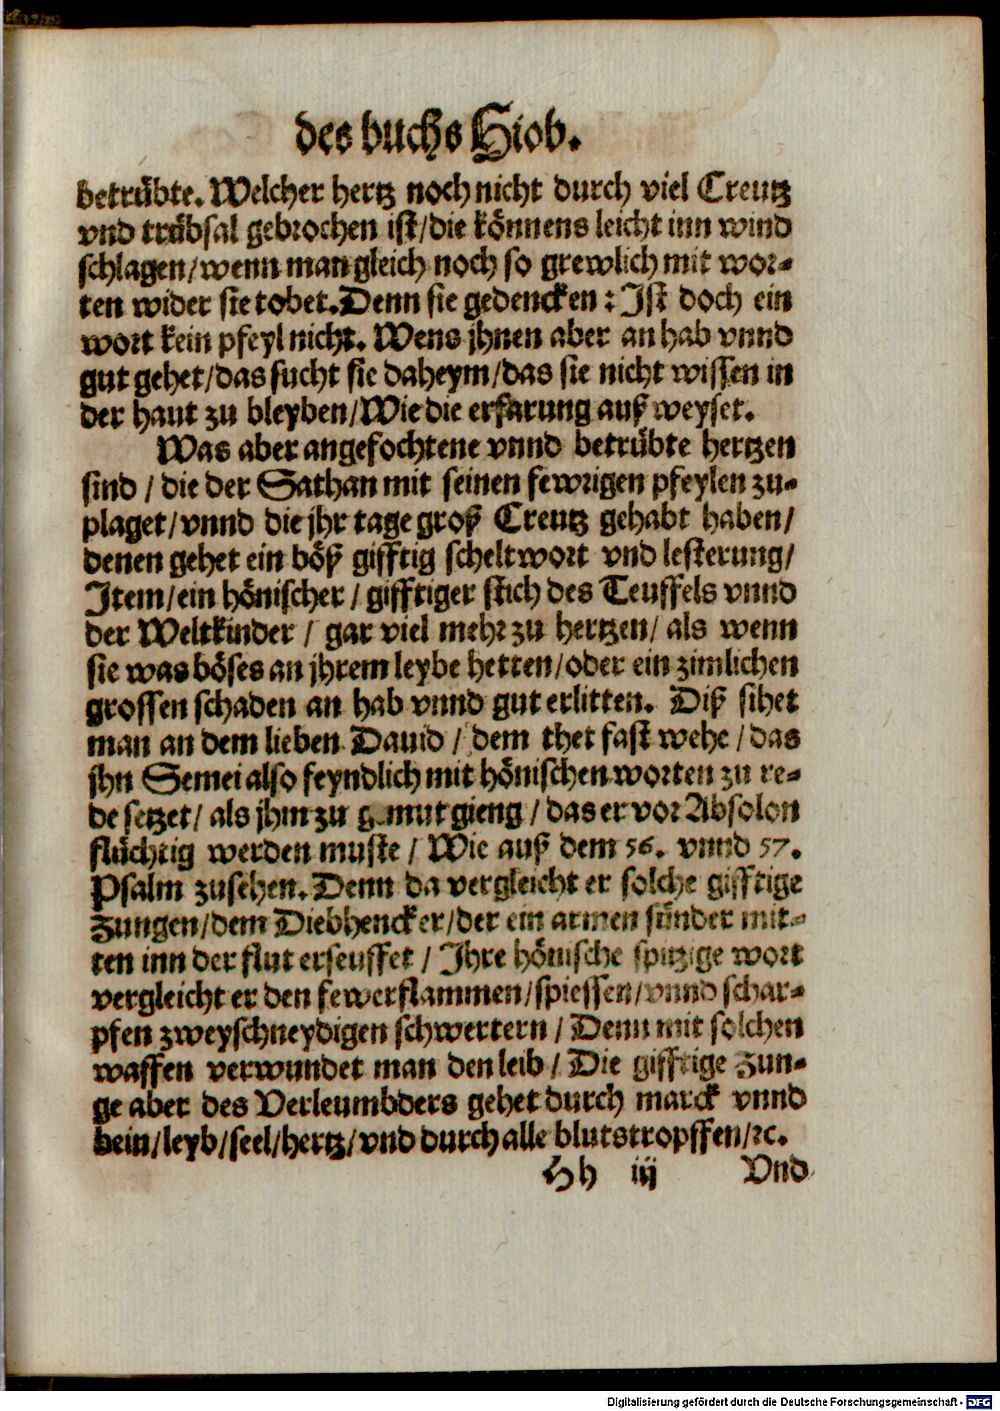 des buchs Hiob.
betrübte. Welcher hertz noch nicht durch viel Creutz
vnd trübsal gebrochen ist/die könnens leicht inn wind
schlagen/wenn man gleich noch so grewlich mit wor-
ten wider sie tobet. Denn sie gedencken: Ist doch ein
wort kein pfeyl nicht. Wens jhnen aber an hab vnnd
gut gehet/das sucht sie daheym/das sie nicht wissen in
der haut zu bleyben/Wie die erfarung auß weyset.
Was aber angefochtene vnnd betrübte hertzen
sind / die der Sathan mit seinen fewrigen pfeylen zu-
plaget/vnnd die jhr tage groß Creutz gehabt haben/
denen gehet ein böß gifftig scheltwort vnd lesterung/
Item/ein hönischer / gifftiger stich des Teuffels vnnd
der Weltkinder / gar viel mehr zu hertzen/ als wenn
sie was böses an jhrem leybe hetten/oder ein zimlichen
grossen schaden an hab vnnd gut erlitten. Diß sihet
man an dem lieben Dauid / dem thet fast wehe / das
jhn Semei also feyndlich mit hönischen worten zu re-
de setzet/ als jhm zu gemut gieng / das er vor Absolon
flüchtig werden muste / Wie auß dem 56. vnnd 57.
Psalm zusehen. Denn da vergleicht er solche gifftige
Zungen/dem Diebhencker/der ein armen sünder mit-
ten inn der flut erseuffet / Ihre hönische spitzige wort
vergleicht er den fewerflammen/spiessen/vnnd schar-
pfen zweyschneydigen schwertern / Denn mit solchen
waffen verwundet man den leib / Die gifftige Zun-
ge aber des Verleumbders gehet durch marck vnnd
bein/leyb/seel/hertz/vnd durch alle blutstropffen/ꝛc.
Hh iij Vnd
Digitalisierung gefördert durch die Deutsche Forschungsgemeinschaft - DFG